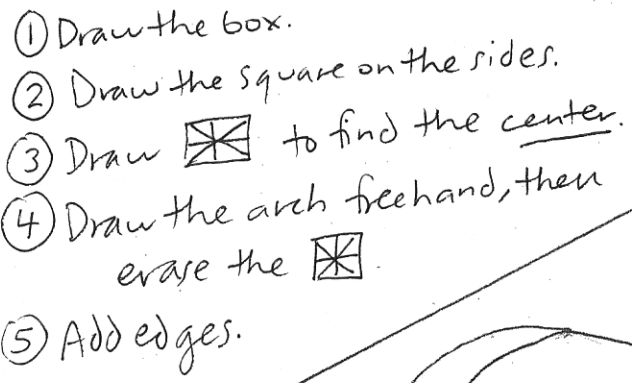 ① Draw the box.
② Draw the square on the sides.
③ Draw to find the center.
④ Draw the arch freehand, then
erase the .
⑤ Add edges.